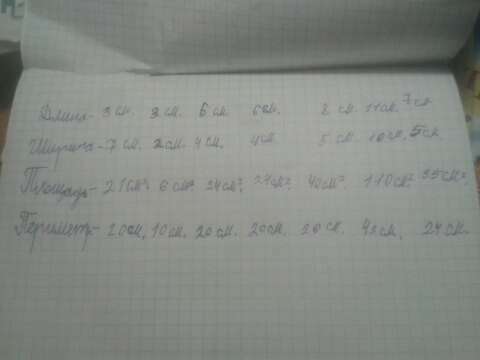 Длина- 3 см. 3 см. 6 см 6 см. 8 см. 11 см. 7 см
Ширина- 7 см. 2 см. 4 см. 4 см 5 см. 10 см. 5 см
Площадь- 21 см². 6 см². 24 см². 24 см². 40 см². 110 см². 35 см².
Периметр- 20 см. 10 см. 20 см. 20 см. 26 см. 42 см. 24 см.